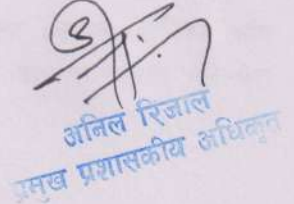 अनिल रिजाल
प्रमुख प्रशासकीय अधिकृत